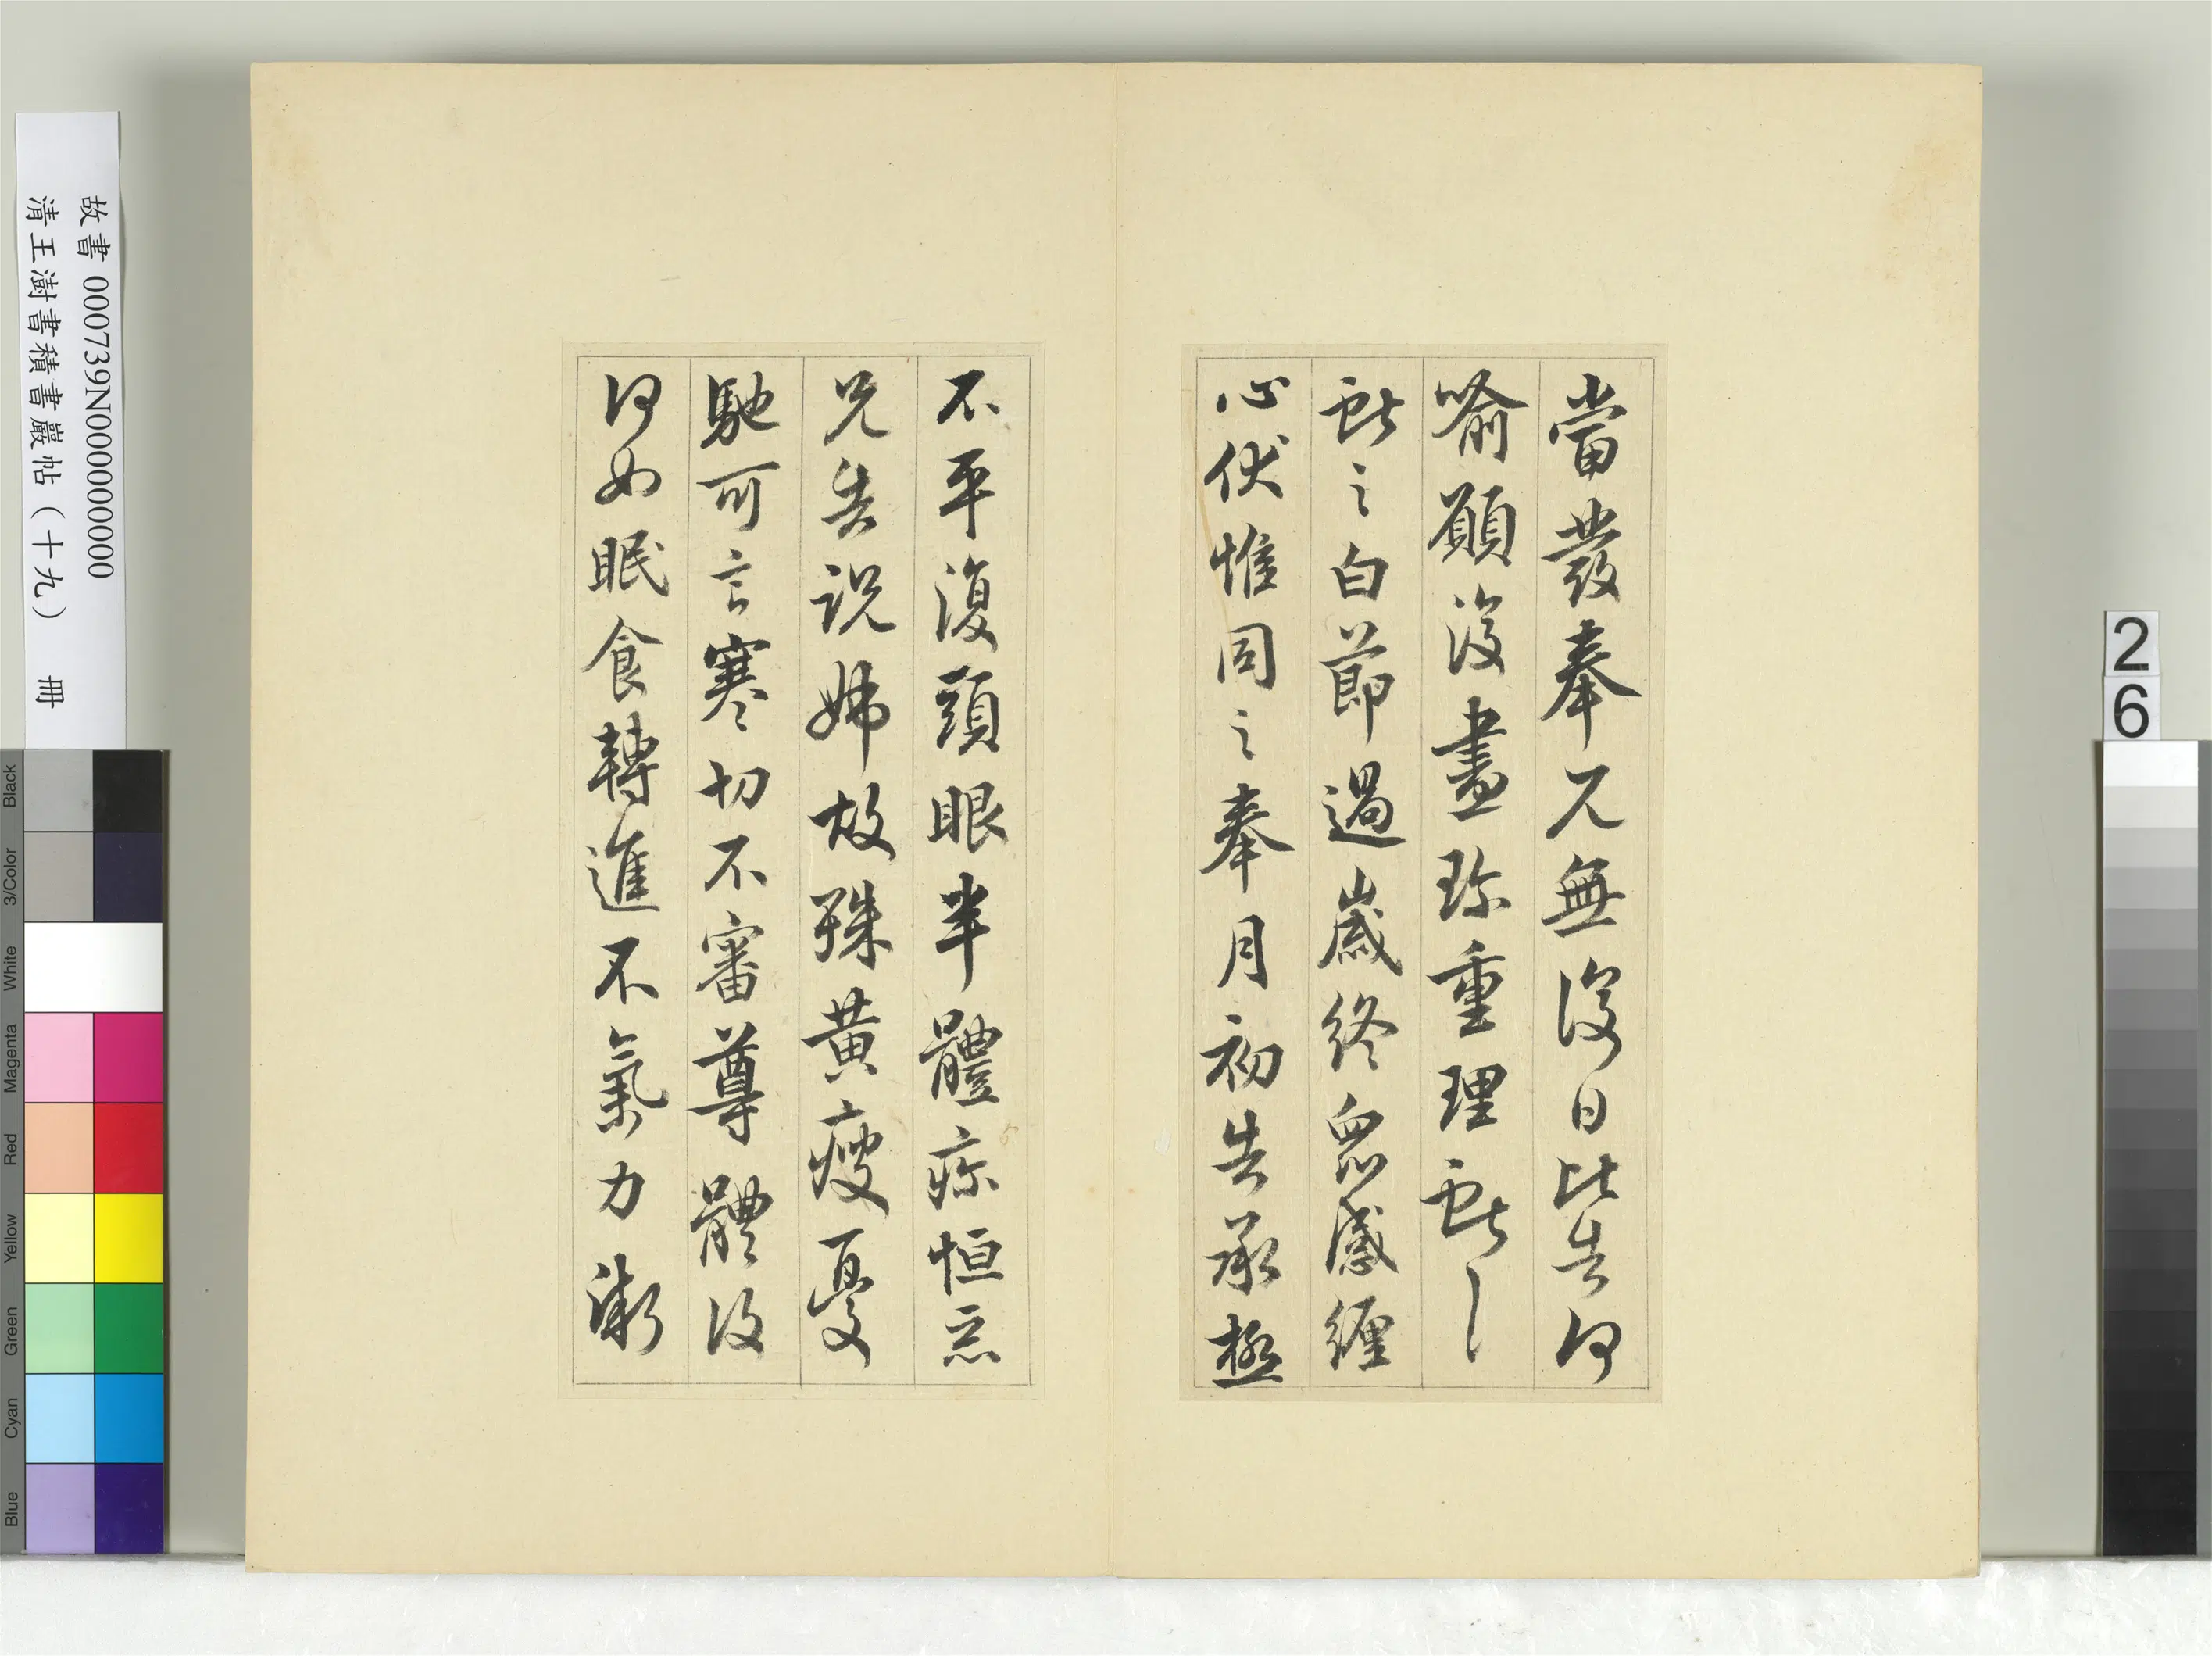 當發奉兄無復日比告何
喻願復盡珎重理獻之
獻之白節過歲終眾感纏
心伏惟同之奉月初告承極
不平復頭眼半體疹恒惡
兄告説姊故殊黃瘦憂
馳可言寒切不審尊體復
何如眠食轉進不氣力漸
故書 000739N000000000
清王澍書積書巖帖（十九） 冊
26
Black
3/Color
White
Magenta
Red
Yellow
Green
Cyan
Blue